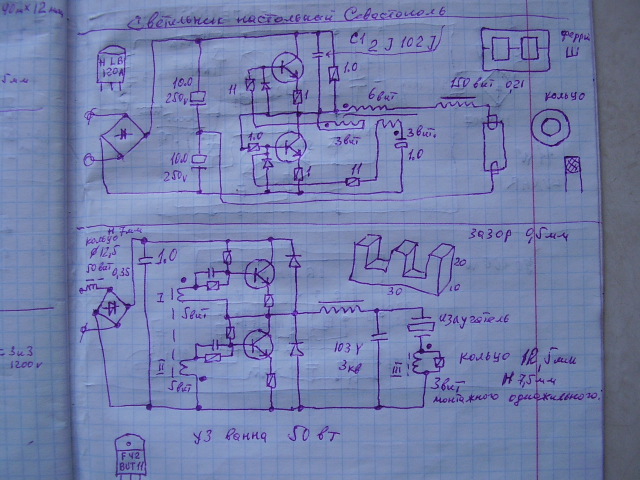 Светильник настольный Севастополь
H LB
120A
C1
2J 102J
ферри
Ш
10.0
250v
11
1
1.0
6вит
150 вит 0,21
кольцо
10.0
250v
1.0
3вит
3вит
1.0
1
11
5мм
H 7мм
кольцо
ф12,5
50вит
0,35
1.0
зазор 0,5мм
20
30
10
I
5вит
излучатель
103Y
3кв
II
5вит
III
3вит
кольцо 12,5мм
H 7,5мм
монтажного одножильного.
1200v
УЗ ванна 50 вт
BUT11